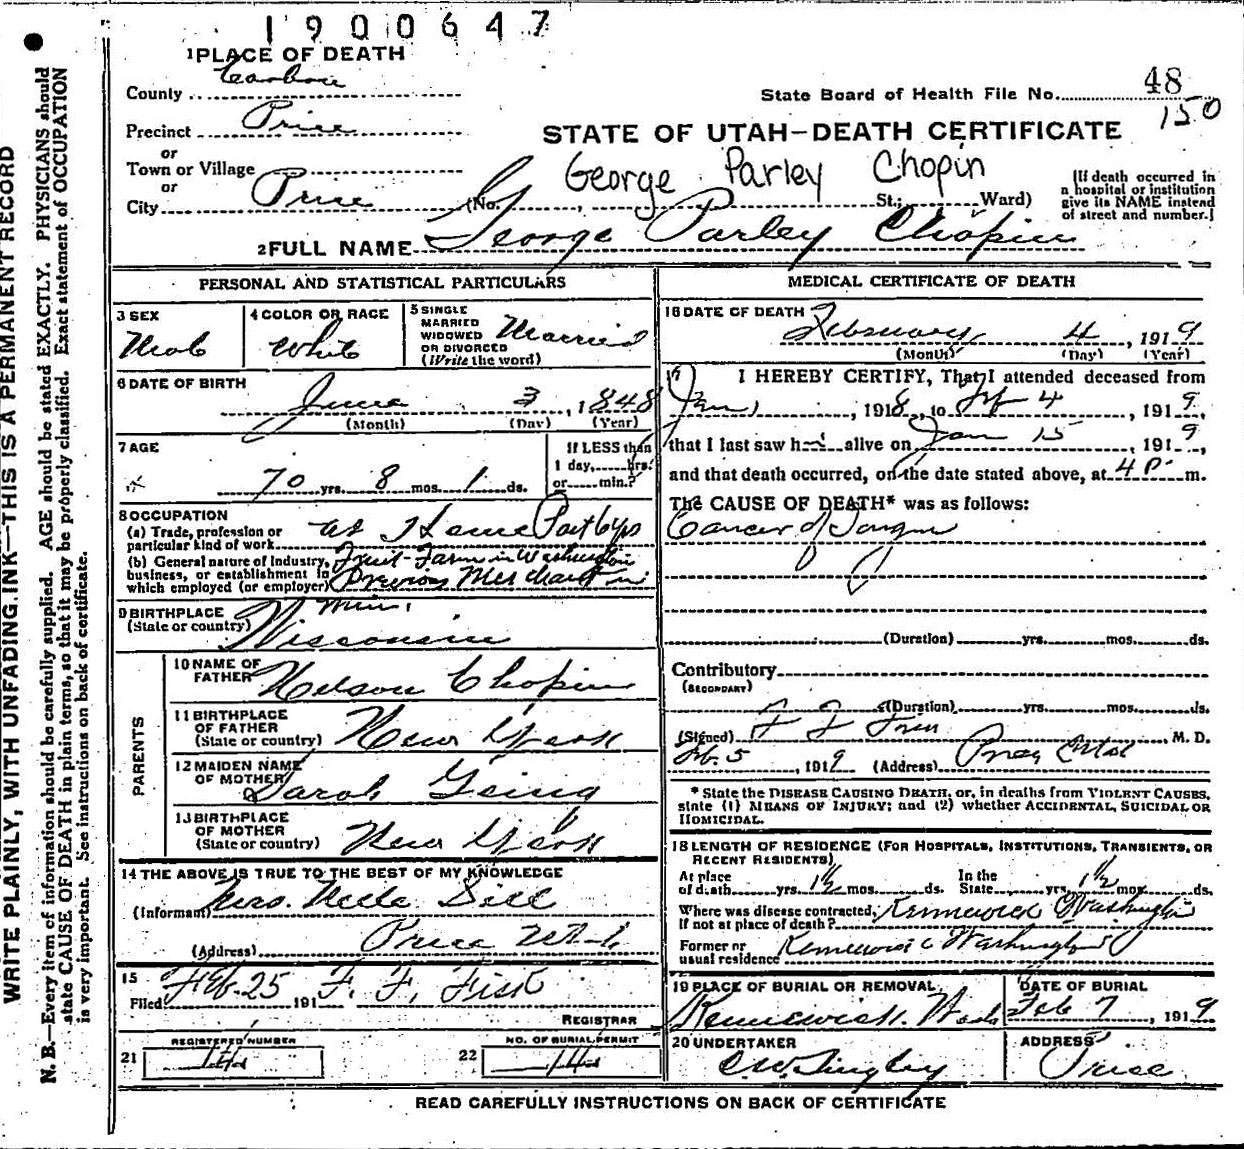 1900647
1 PLACE OF DEATH
County Carbon
48
State Board of Health File No.
150
Precinct Price
STATE OF UTAH—DEATH CERTIFICATE
or
Town or Village
George Parley Chopin
or
City Price (No. , St.; Ward)
(If death occurred in a hospital or institution give its NAME instead of street and number.)
2 FULL NAME George Parley Chopin
PERSONAL AND STATISTICAL PARTICULARS
3 SEX
4 COLOR OR RACE White
5 SINGLE MARRIED WIDOWED OR DIVORCED (Write the word) Married
6 DATE OF BIRTH
June 3, 1848
(Month) (Day) (Year)
7 AGE
70 yrs. 8 mos. 1 ds.
If LESS than 1 day, hrs. or min.?
8 OCCUPATION
(a) Trade, profession or particular kind of work At Home Past 6 yrs
(b) General nature of Industry, business, or establishment in which employed (or employer) Fruit-Farm in Washington Previous Merchant in
9 BIRTHPLACE (State or country) Wisconsin
PARENTS
10 NAME OF FATHER Nelson Chopin
11 BIRTHPLACE OF FATHER (State or country) New York
12 MAIDEN NAME OF MOTHER Sarah
13 BIRTHPLACE OF MOTHER (State or country) New York
14 THE ABOVE IS TRUE TO THE BEST OF MY KNOWLEDGE
(Informant) Mrs.
(Address) Price Utah
15
Filed Feb. 25 191 F. F. Fisk
REGISTRAR
21 REGISTERED NUMBER 14
22 NO. OF BURIAL PERMIT 14
MEDICAL CERTIFICATE OF DEATH
16 DATE OF DEATH
February 4, 1919
(Month) (Day) (Year)
17 I HEREBY CERTIFY, That I attended deceased from
Jan, 1918, to Feb 4, 1919,
that I last saw h alive on Jan 15, 1919,
and that death occurred, on the date stated above, at 4 P. m.
The CAUSE OF DEATH* was as follows:
Cancer of Tongue
(Duration) yrs. mos. ds.
Contributory
(SECONDARY)
(Duration) yrs. mos. ds.
(Signed) , M. D.
Feb. 5, 1919 (Address)
* State the DISEASE CAUSING DEATH, or, in deaths from VIOLENT CAUSES,
state (1) MEANS OF INJURY; and (2) whether ACCIDENTAL, SUICIDAL OR
HOMICIDAL.
18 LENGTH OF RESIDENCE (FOR HOSPITALS, INSTITUTIONS, TRANSIENTS, OR
RECENT RESIDENTS)
At place of death yrs. 1½ mos. ds. In the State yrs. 1½ mos. ds.
Where was disease contracted, If not at place of death? Kennewick Washington
Former or usual residence Kennewick Washington
19 PLACE OF BURIAL OR REMOVAL Kennewick. Wash
DATE OF BURIAL Feb 7, 1919
20 UNDERTAKER
ADDRESS Price
READ CAREFULLY INSTRUCTIONS ON BACK OF CERTIFICATE
WRITE PLAINLY, WITH UNFADING INK—THIS IS A PERMANENT RECORD
N. B.—Every item of information should be carefully supplied. AGE should be stated EXACTLY. PHYSICIANS should
state CAUSE OF DEATH in plain terms, so that it may be properly classified. Exact statement of OCCUPATION
is very important. See instructions on back of certificate.